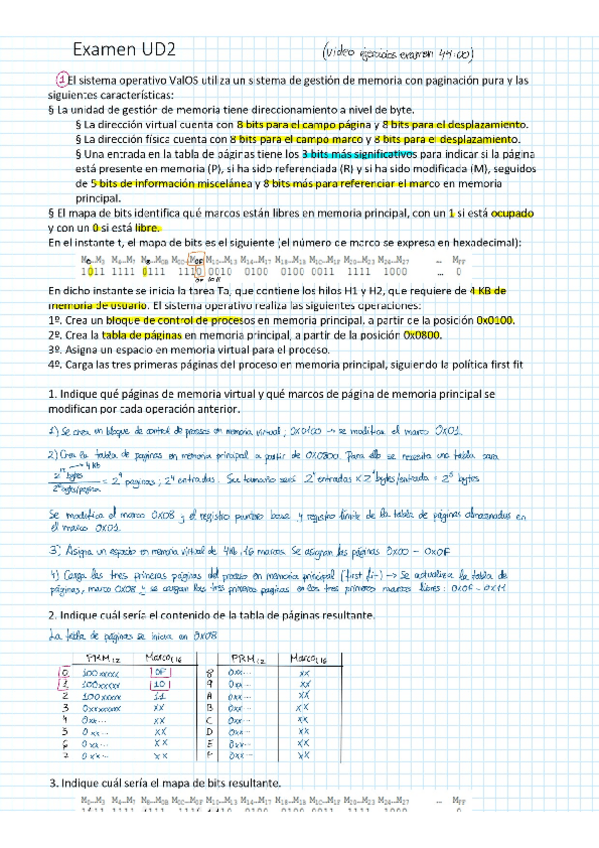 Examen UD2
(video ejercicios examen 44:00)
1 El sistema operativo ValOS utiliza un sistema de gestión de memoria con paginación pura y las
siguientes características:
§ La unidad de gestión de memoria tiene direccionamiento a nivel de byte.
§ La dirección virtual cuenta con 8 bits para el campo página y 8 bits para el desplazamiento.
§ La dirección física cuenta con 8 bits para el campo marco y 8 bits para el desplazamiento.
§ Una entrada en la tabla de páginas tiene los 3 bits más significativos para indicar si la página
está presente en memoria (P), si ha sido referenciada (R) y si ha sido modificada (M), seguidos
de 5 bits de información miscelánea y 8 bits más para referenciar el marco en memoria
principal.
§ El mapa de bits identifica qué marcos están libres en memoria principal, con un 1 si está ocupado
y con un 0 si está libre.
En el instante t, el mapa de bits es el siguiente (el número de marco se expresa en hexadecimal):
M0…M3 M4-M7 M8…M0B M0C…M0F M10…M13 M14…M17 M18…M1B M1C…M1F M20…M23 M24…M27 … MFF
1011 1111 0111 1110 0010 0100 0100 0011 1111 1000 … 0
En dicho instante se inicia la tarea Ta, que contiene los hilos H1 y H2, que requiere de 4 KB de
memoria de usuario. El sistema operativo realiza las siguientes operaciones:
1º. Crea un bloque de control de procesos en memoria principal, a partir de la posición 0x0100.
2º. Crea la tabla de páginas en memoria principal, a partir de la posición 0x0800.
3º. Asigna un espacio en memoria virtual para el proceso.
4º. Carga las tres primeras páginas del proceso en memoria principal, siguiendo la política first fit
1. Indique qué páginas de memoria virtual y qué marcos de página de memoria principal se
modifican por cada operación anterior.
1) Se crea un bloque de control de procesos en memoria virtual; 0x0100 → se modifica el marco 0x01.
2) Crea la tabla de páginas en memoria principal a partir de 0x0800. Para ello se necesita una tabla para
→ 4 KB
2^12 bytes / 2^8 bytes/página = 2^4 páginas; 2^4 entradas. Su tamaño será 2^4 entradas × 2^1 bytes/entrada = 2^5 bytes
Se modifica el marco 0x08 y el registro puntero base y registro límite de la tabla de páginas almacenados en
el marco 0x01.
3) Asigna un espacio en memoria virtual de 4KB, 16 marcos. Se asignan las páginas 0x00 - 0x0F
4) Carga las tres primeras páginas del proceso en memoria principal (first fit) → Se actualiza la tabla de
páginas, marco 0x08 y se cargan las tres primeras páginas en los tres primeros marcos libres: 0x0F - 0x11
2. Indique cuál sería el contenido de la tabla de páginas resultante.
La tabla de páginas se inicia en 0x08
PRM(2 Marco(16 PRM(2 Marco(16
0 100xxxxx 0F 8 0xx... xx
1 100xxxxx 10 9 0xx... xx
2 100xxxxx 11 A 0xx... xx
3 0xxxxxxx xx B 0xx... xx
4 0xx... xx C 0xx... xx
5 0xx... xx D 0xx... xx
6 0xx... xx E 0xx... xx
7 0xx... xx F 0xx... xx
3. Indique cuál sería el mapa de bits resultante.
M0…M3 M4-M7 M8…M0B M0C…M0F M10…M13 M14…M17 M18…M1B M1C…M1F M20…M23 M24…M27 … MFF